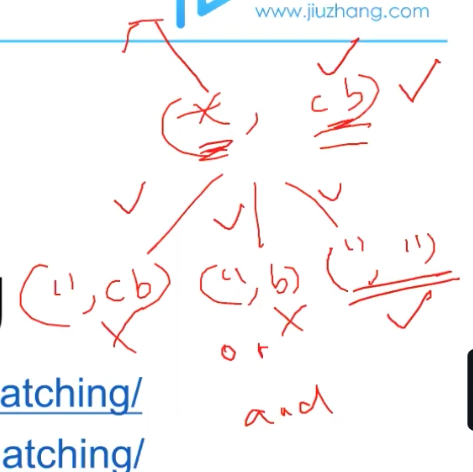 www.jiuzhang.com
(*, cb)
('', cb) ('', b) ('', '')
or
and
atching/
atching/